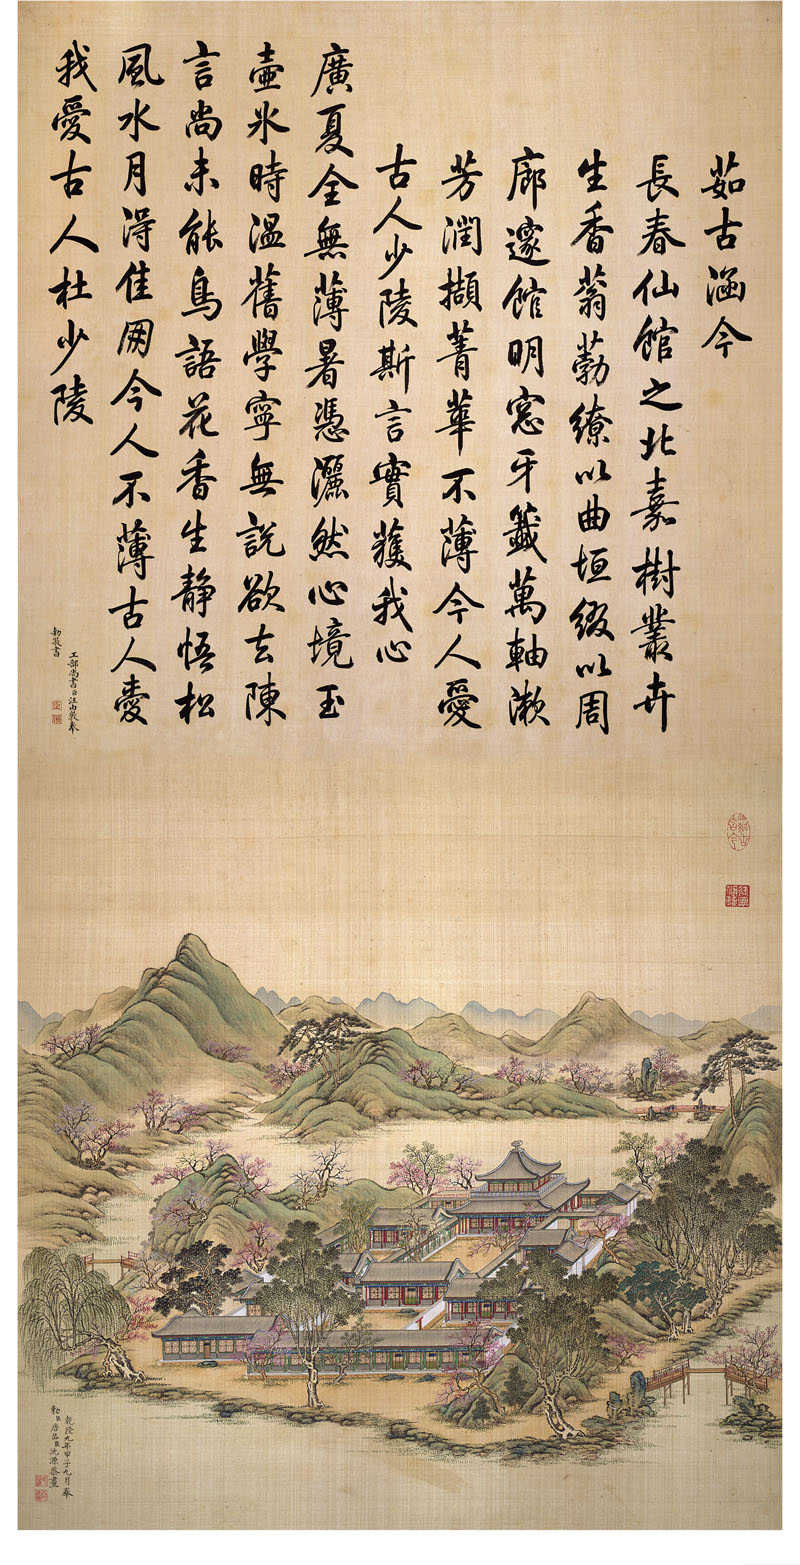 茹古涵今
長春仙館之北嘉樹叢卉
生香蓊葧繚以曲垣綴以周
廊邃館明窓牙籤萬軸漱
芳潤擷菁華不薄今人愛
古人少陵斯言實獲我心
廣夏全無薄暑憑灑然心境玉
壺氷時温舊學寧無說欲去陳
言尚未能鳥語花香生静悟松
風水月淂佳朋今人不薄古人愛
我愛古人杜少陵
工部尚書臣汪由敦奉
勅敬書
乾隆九年甲子九月奉
勅臣唐岱臣沈源恭畫